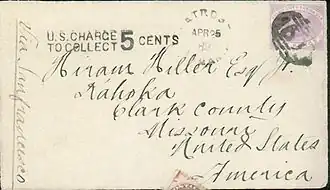 U.S. CHARGE
TO COLLECT 5 CENTS
APR 25
Via Sanfrancisco
Hiram Hiller Esq Jr.
Kahoka
Clark county
Missouri
United States
America